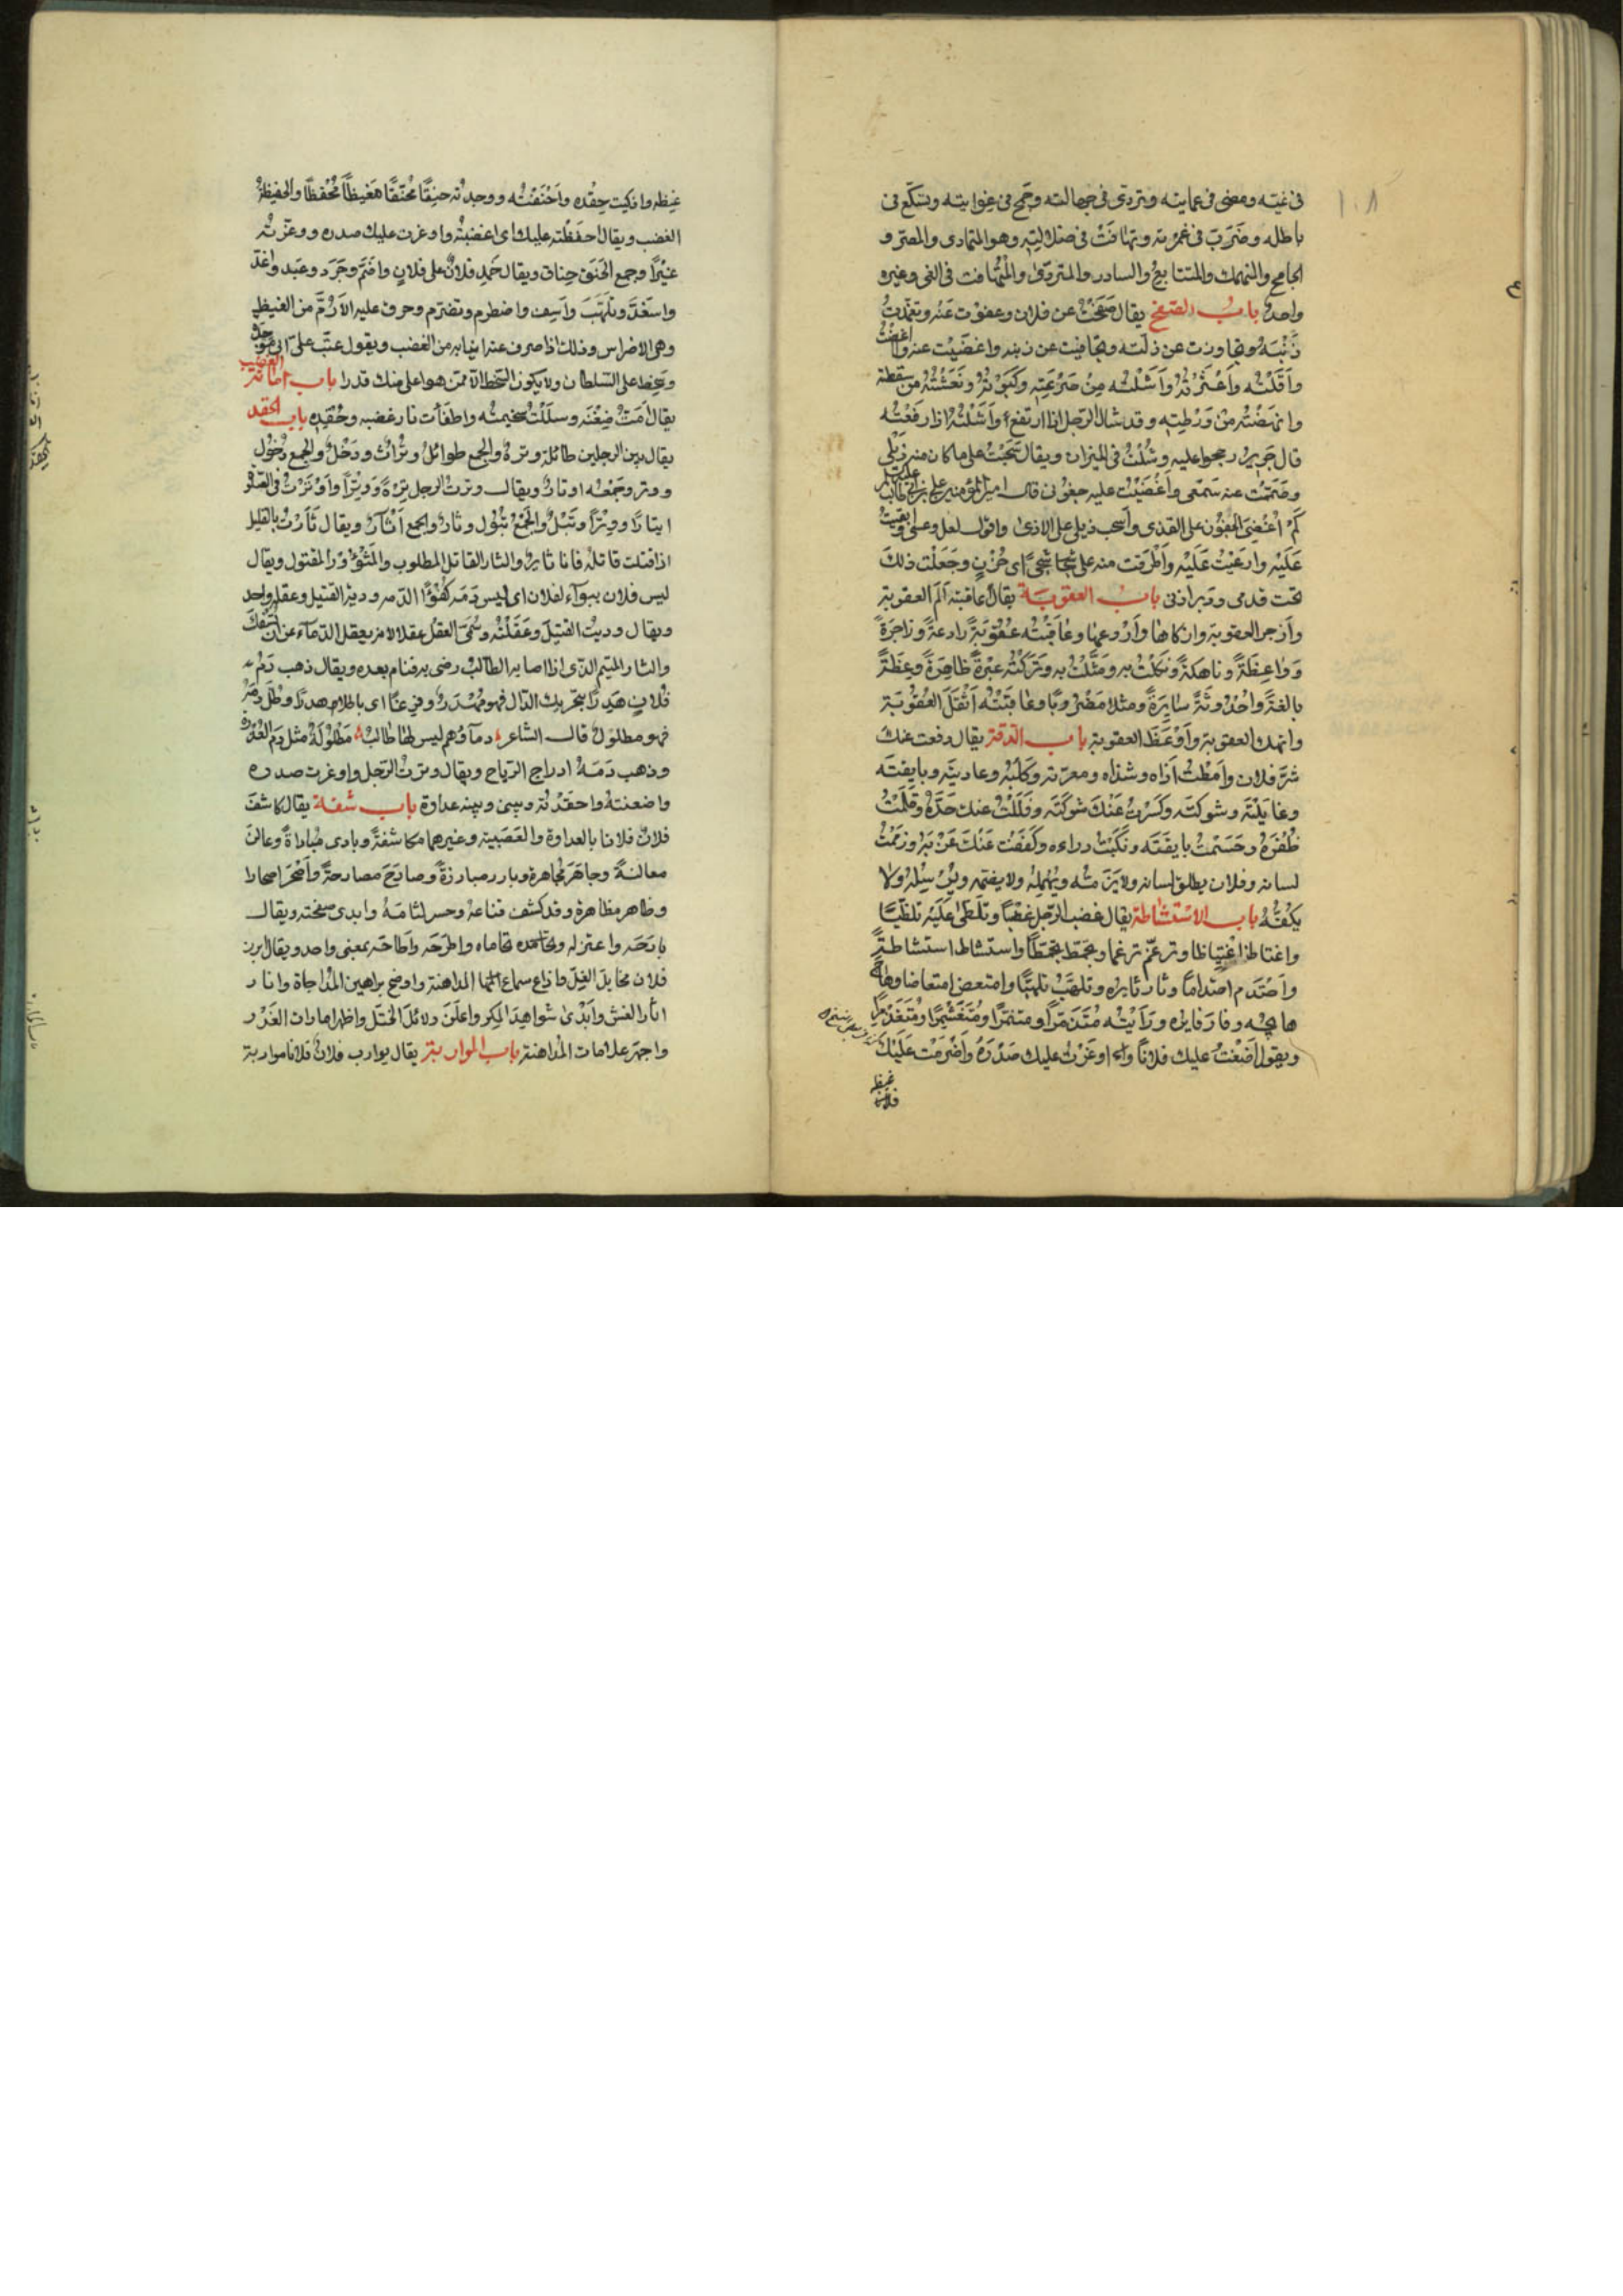 ١٠٨
فى غيّه ومضى فى عمايته وتردّى فى جهالته وجمح فى غوايته وتسكّع فى
باطله وضرب فى غمرته وتهافت فى ضلالته وهو المتمادى والمصرّ و
الجامح والمنهمك والمتتابع والسادر والمتردّى والمتهافت فى الغى وغيره
واحد باب الصفح يقال صفحت عن فلان وعفوت عنه وتغمّدت
ذنبه وتجاوزت عن زلّته وتجافيت عن ذنبه واغضيت عنه و
واقلته واعثرته واشلته من صرعته وكبوته ونعشته من سقطته
وانهضته من ورطته وقد شال الرجل اذا ارتفع واشلته اذا رفعته
قال جرير رجحوا عليه وشلت فى الميزان ويقال سحبت على ما كان منه ذيلى
وصممت عنه سمعى واغضيت عليه جفونى قال امير المؤمنين على بن ابى طالب
كم اغضى الجفون على القذى واسحب ذيلى على الاذى واقول لعل وعسى وابقيت
عليه وارعيت عليه واطرقت منه على شجا شجى اى حزن وجعلت ذلك
تحت قدمى ودبر اذنى باب العقوبة يقال عاقبته الم العقوبة
وازجر العقوبة وانكاها واردعها وعاقبته عقوبةً رادعةً وزاجرةً
وواعظةً وناهكةً ونكلت به ومثّلت به وتركته عبرةً ظاهرةً وعظةً
بالغةً واحدوثةً سايرةً ومثلا مضروبًا وعاقبته اثقل العقوبة
وانهك العقوبة واوعظ العقوبة باب الدقة يقال دفعت عنك
شرّ فلان وامطت اذاه وشذاه ومعرّته وكلبه وعاديته وبايقته
وغايلته وشوكته وكسرت عنك شوكته وفللت عنك حدّه وقلمت
ظفره وحسمت بايقته ونكبت دراءه وكففت عنك غربه وزممت
لسانه وفلان يطلق لسانه ويهمله
يكفّه باب الاستشاطة يقال غضب الرجل غضبًا وتلظّى عليه تلظّيًا
واغتاظ اغتياظا وتزغّم تزغّما واستشاط استشاطةً
واحتدم احتدامًا وثار ثايره وتلهّب تلهّبًا وامتعض امتعاضا وهاج
هايجه وفار فايره ورايته متذمّرًا ومتنمّرًا ومتغشمرًا
ويقول اضغنت عليك فلانًا واوغرت عليك صدره واضرمت عليك
غيظه
غيظه واذكيت حقده واحنقته ووجدته حنقًا محنقًا مغيظًا محفظًا والحفيظة
الغضب ويقال احفظته عليك اى اغضبته واوغرت عليك صدره ووغرته
وجمع الحنق حناق ويقال حمد فلان على فلان واضمّ وحرد وعبد واغدّ
واسغدّ وتلهّب واسف واضطرم وتضرّم وحرق عليه الارّم من الغيظ
وهى الاضراس وذلك اذا صرف عند انيابه من الغضب ويقول عتب علىّ
وسخط على السلطان ولا يكون السخط الا ممن هو اعلى منك قدرا باب اماتة الغضب
يقال امتّ ضغنه وسللت سخيمته واطفأت نار غضبه وحقده باب الحقد
يقال بين الرجلين طائلة وترة والجمع طوائل وترات ودخل والجمع دخول
ووتر وجمعه اوتار ويقال وترت الرجل ترةً ووترًا واوترت فى الصلاة
ايتارًا ووترًا وتبل والجمع تبول وثار والجمع اثار ويقال ثارت بالقتيل
اذا قتلت قاتله فانا ثائر والثار القاتل المطلوب والمثؤور المقتول ويقال
ليس فلان ببواء لفلان اى ليس دمه كفؤًا لدمه ودية القتيل وعقله واحد
ويقال وديت القتيل وعقلته وسمى العقل عقلا لانه يعقل الدماء عن ان تسفك
والثار المنيم الذى اذا اصابه الطالب رضى به فنام بعده ويقال ذهب دم
فلان هدرًا بتحريك الدال فهو مهدر اى باطلا هدرًا وطلّ دمه
فهو مطلول قال الشاعر دماؤهم ليس لها طالب مطلولة مثل دم العذرة
وذهب دمه ادراج الرياح ويقال وترت الرجل واوغرت صدره
واضغنته واحقدته وبينى وبينه عداوة باب شفة يقال كاشف
فلان فلانا بالعداوة والعصبية وغيرهما مكاشفةً وبادى مباداةً وعالن
معالنةً وجاهر مجاهرة وبارز مبارزةً وصارح مصارحةً واصحر اصحارا
وظاهر مظاهرة وقد كشف قناعه وحسر لثامه وابدى صفحته ويقال
واعتزله وتحاماه واطرحه بمعنى واحد ويقال ابرز
فلان مخايل الغل المداهنة واوضح براهين المداجاة وانار
اثار الغش وابدى شواهد المكر واعلن دلائل الختل واظهر امارات الغدر
واجهر علامات المداهنة باب المواربة يقال يوارب فلان فلانا مواربة